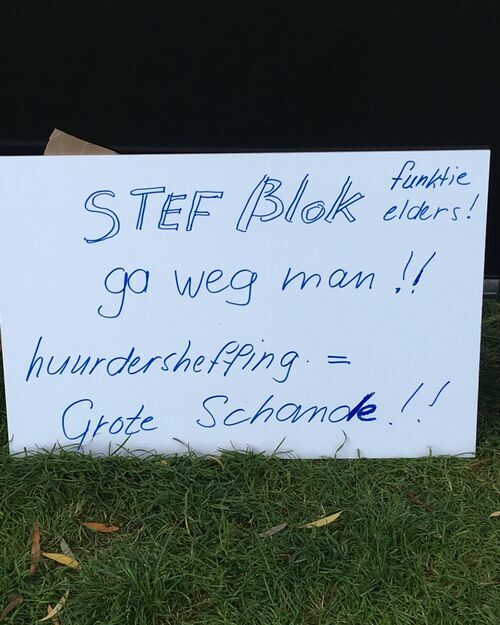 STEF Blok funktie elders!
ga weg man !!
huurdersheffing =
Grote Schande.!!